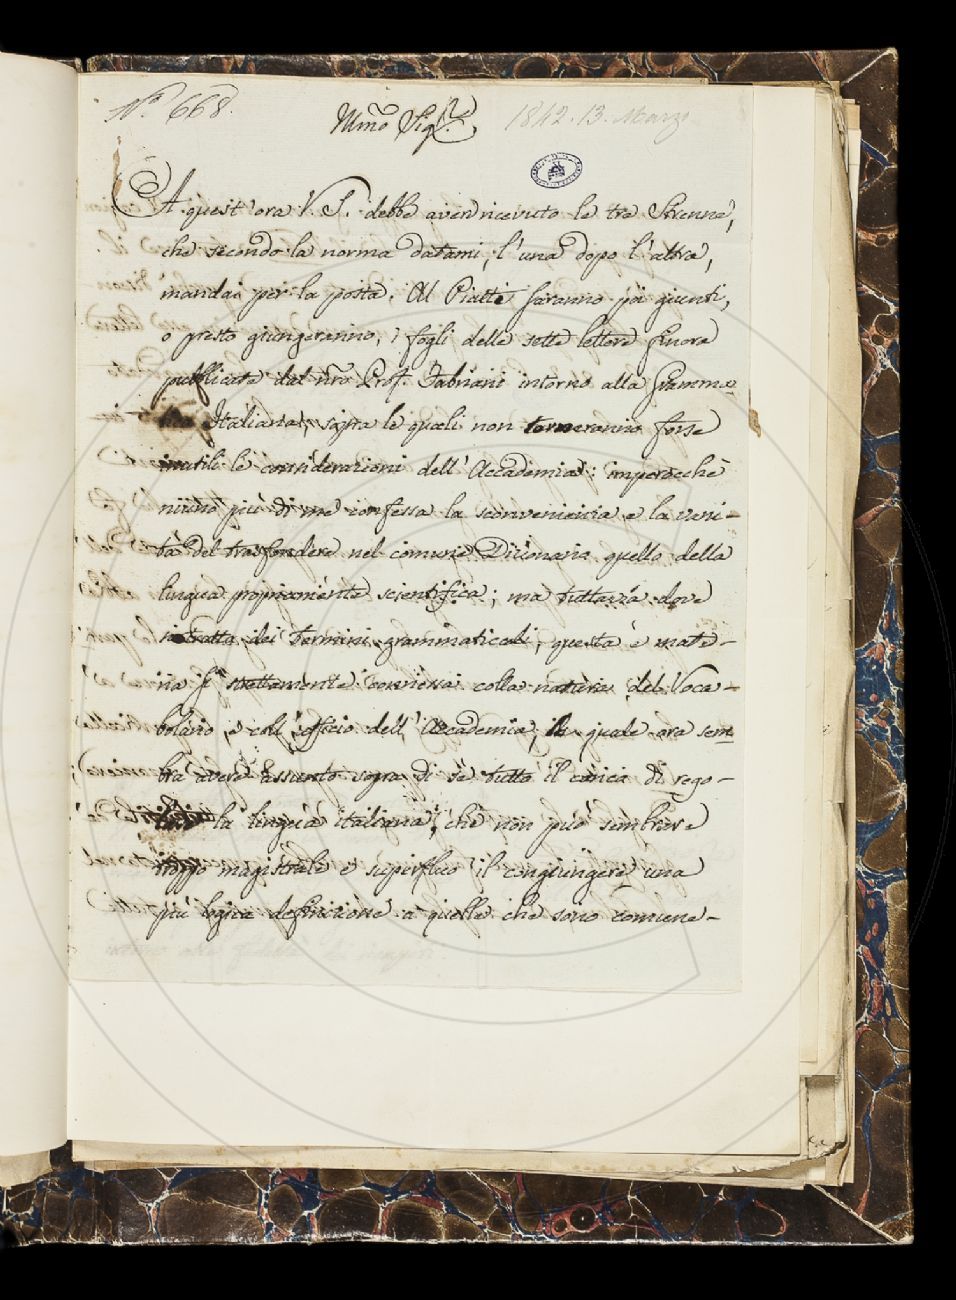 N.º 668.
Illmo Sig.re
1842. 13. Marzo
A quest'ora V. S. debbe aver ricevuto le tre Strenne,
che secondo la norma datami, l'una dopo l'altra,
mandai per la posta. Al Piatti saranno poi giunti,
o presto giungeranno, i fogli delle sette lettere finora
pubblicate dal nro Prof. Fabriani intorno alla Gramma-
tica Italiana, sopra le quali non torneranno forse
inutili le considerazioni dell'Accademia: imperocchè
niuno più di me confessa la sconvenienza e la vani-
tà del trasfondere nel comune Dizionario quello della
lingua propriamente scientifica; ma tuttavia dove
si tratta dei termini grammaticali, questa è mate-
ria sì strettamente connessa colla natura del Voca-
bolario, e coll'officio dell'Accademia, la quale ora sem-
bra avere assunto sopra di sè tutto il carico di rego-
lare la lingua italiana, che non può sembrare
troppo magistrale e superfluo il congiungere una
più logica definizione a quelle che sono comune-